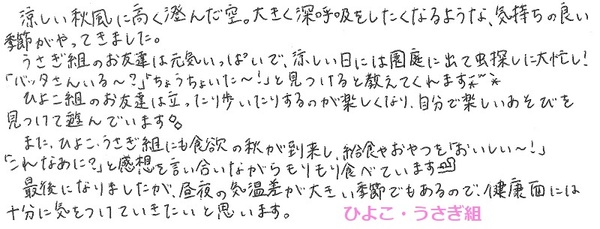 涼しい秋風に高く澄んだ空。大きく深呼吸をしたくなるような、気持ちの良い
季節がやってきました。
うさぎ組のお友達は元気いっぱいで、涼しい日には園庭に出て虫探しに大忙し!
「バッタさんいる～?」「ちょうちょいた～!」と見つけると教えてくれます
ひよこ組のお友達は立ったり歩いたりするのが楽しくなり、自分で楽しいあそびを
見つけて遊んでいます。
また、ひよこ・うさぎ組にも食欲の秋が到来し、給食やおやつを「おいしい～!」
「これなあに?」と感想を言い合いながらもりもり食べています
最後になりましたが、昼夜の気温差が大きい季節でもあるので、健康面には
十分に気をつけていきたいと思います。
ひよこ・うさぎ組